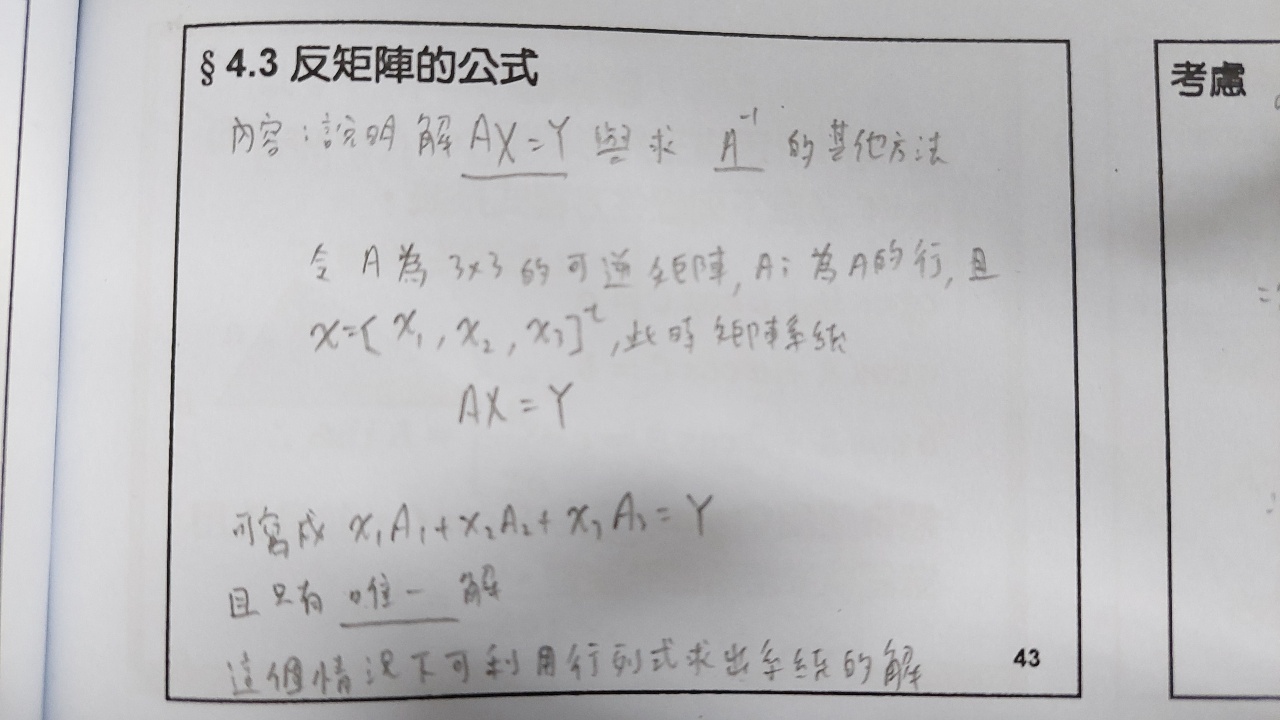 § 4.3 反矩陣的公式
內容:說明 解 AX=Y 與 求 A⁻¹ 的其他方法
令 A 為 3×3 的可逆矩陣, Ai 為 A的行, 且
x=[ x₁, x₂, x₃]ᵗ, 此時 矩陣系統
AX = Y
可寫成 x₁A₁ + x₂A₂ + x₃A₃ = Y
且只有 唯一 解
這個情況下可利用行列式求出系統的解
43
考慮